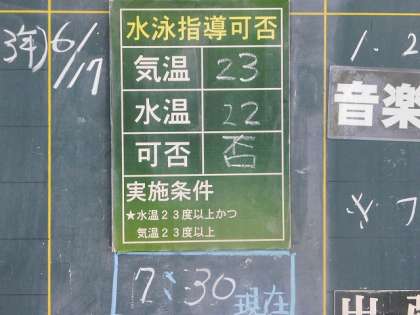 3年) 6/17
水泳指導可否
気温 23
水温 22
可否 否
実施条件
★水温23度以上かつ
気温23度以上
7:30 現在
1.2
音楽